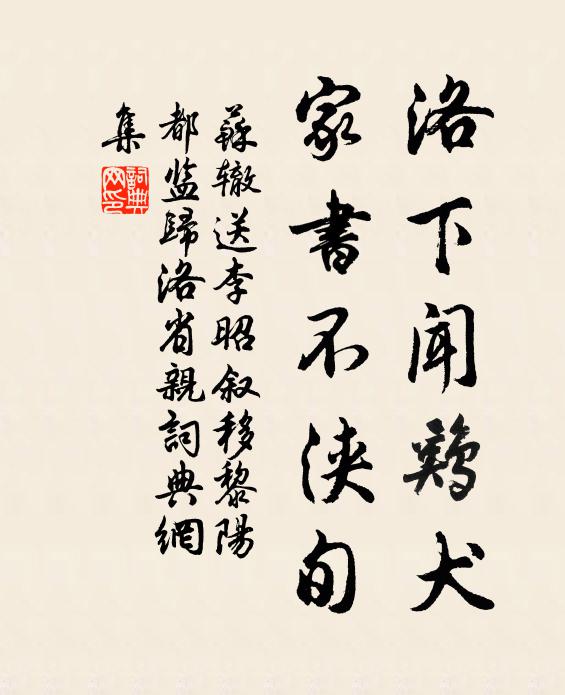 洛下闻鸡犬
家書不浃旬
蘇辙送李昭叙移黎陽
都监歸洛省親詞典網
集
詞典
网印